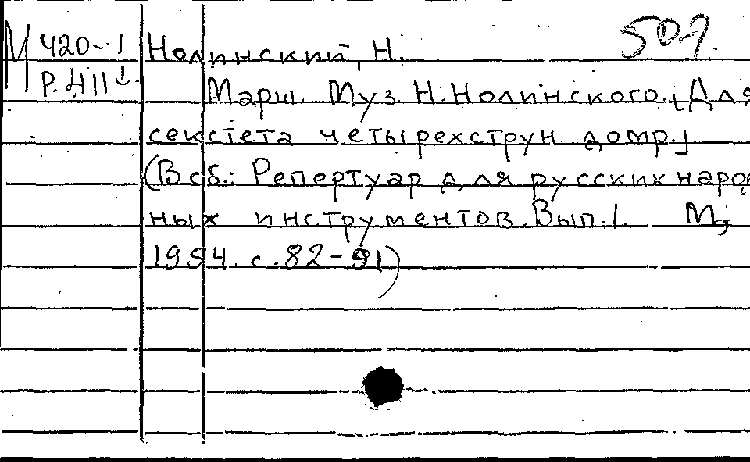 М 420-1 Нолинский, Н. 509.
Р.411
Марш. Муз. Н.Нолинского. [Для
секстета четырехструн домр.]
(В сб.: Репертуар для русских народ
ных инструментов. Вып.1. М.,
1954. с.82-91)